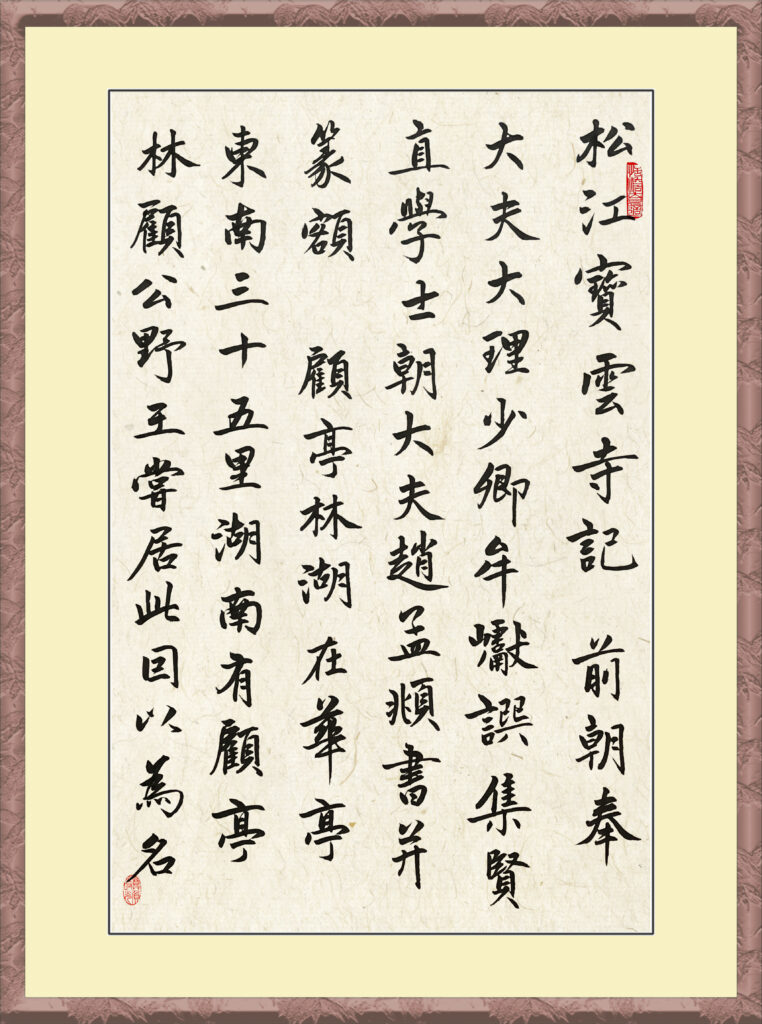 松江寶雲寺記 前朝奉
大夫大理少卿牟巘譔集賢
直學士朝大夫趙孟頫書并
篆額 顧亭林湖在華亭
東南三十五里湖南有顧亭
林顧公野王嘗居此因以為名